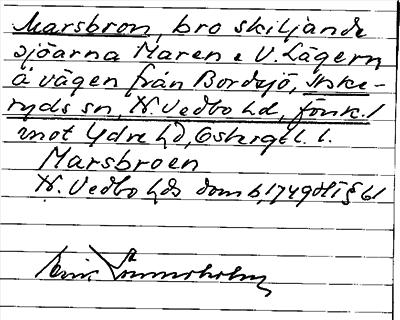 Marsbron, bro skiljande
sjöarna Maren o V. Lägern
å vägen från Bordsjö, Aske-
ryds sn, N. Vedbo hd, Jönk. l
mot Ydre hd, Östergötl. l.
Marsbroen
N. Vedbo hds domb, 1749 § 61